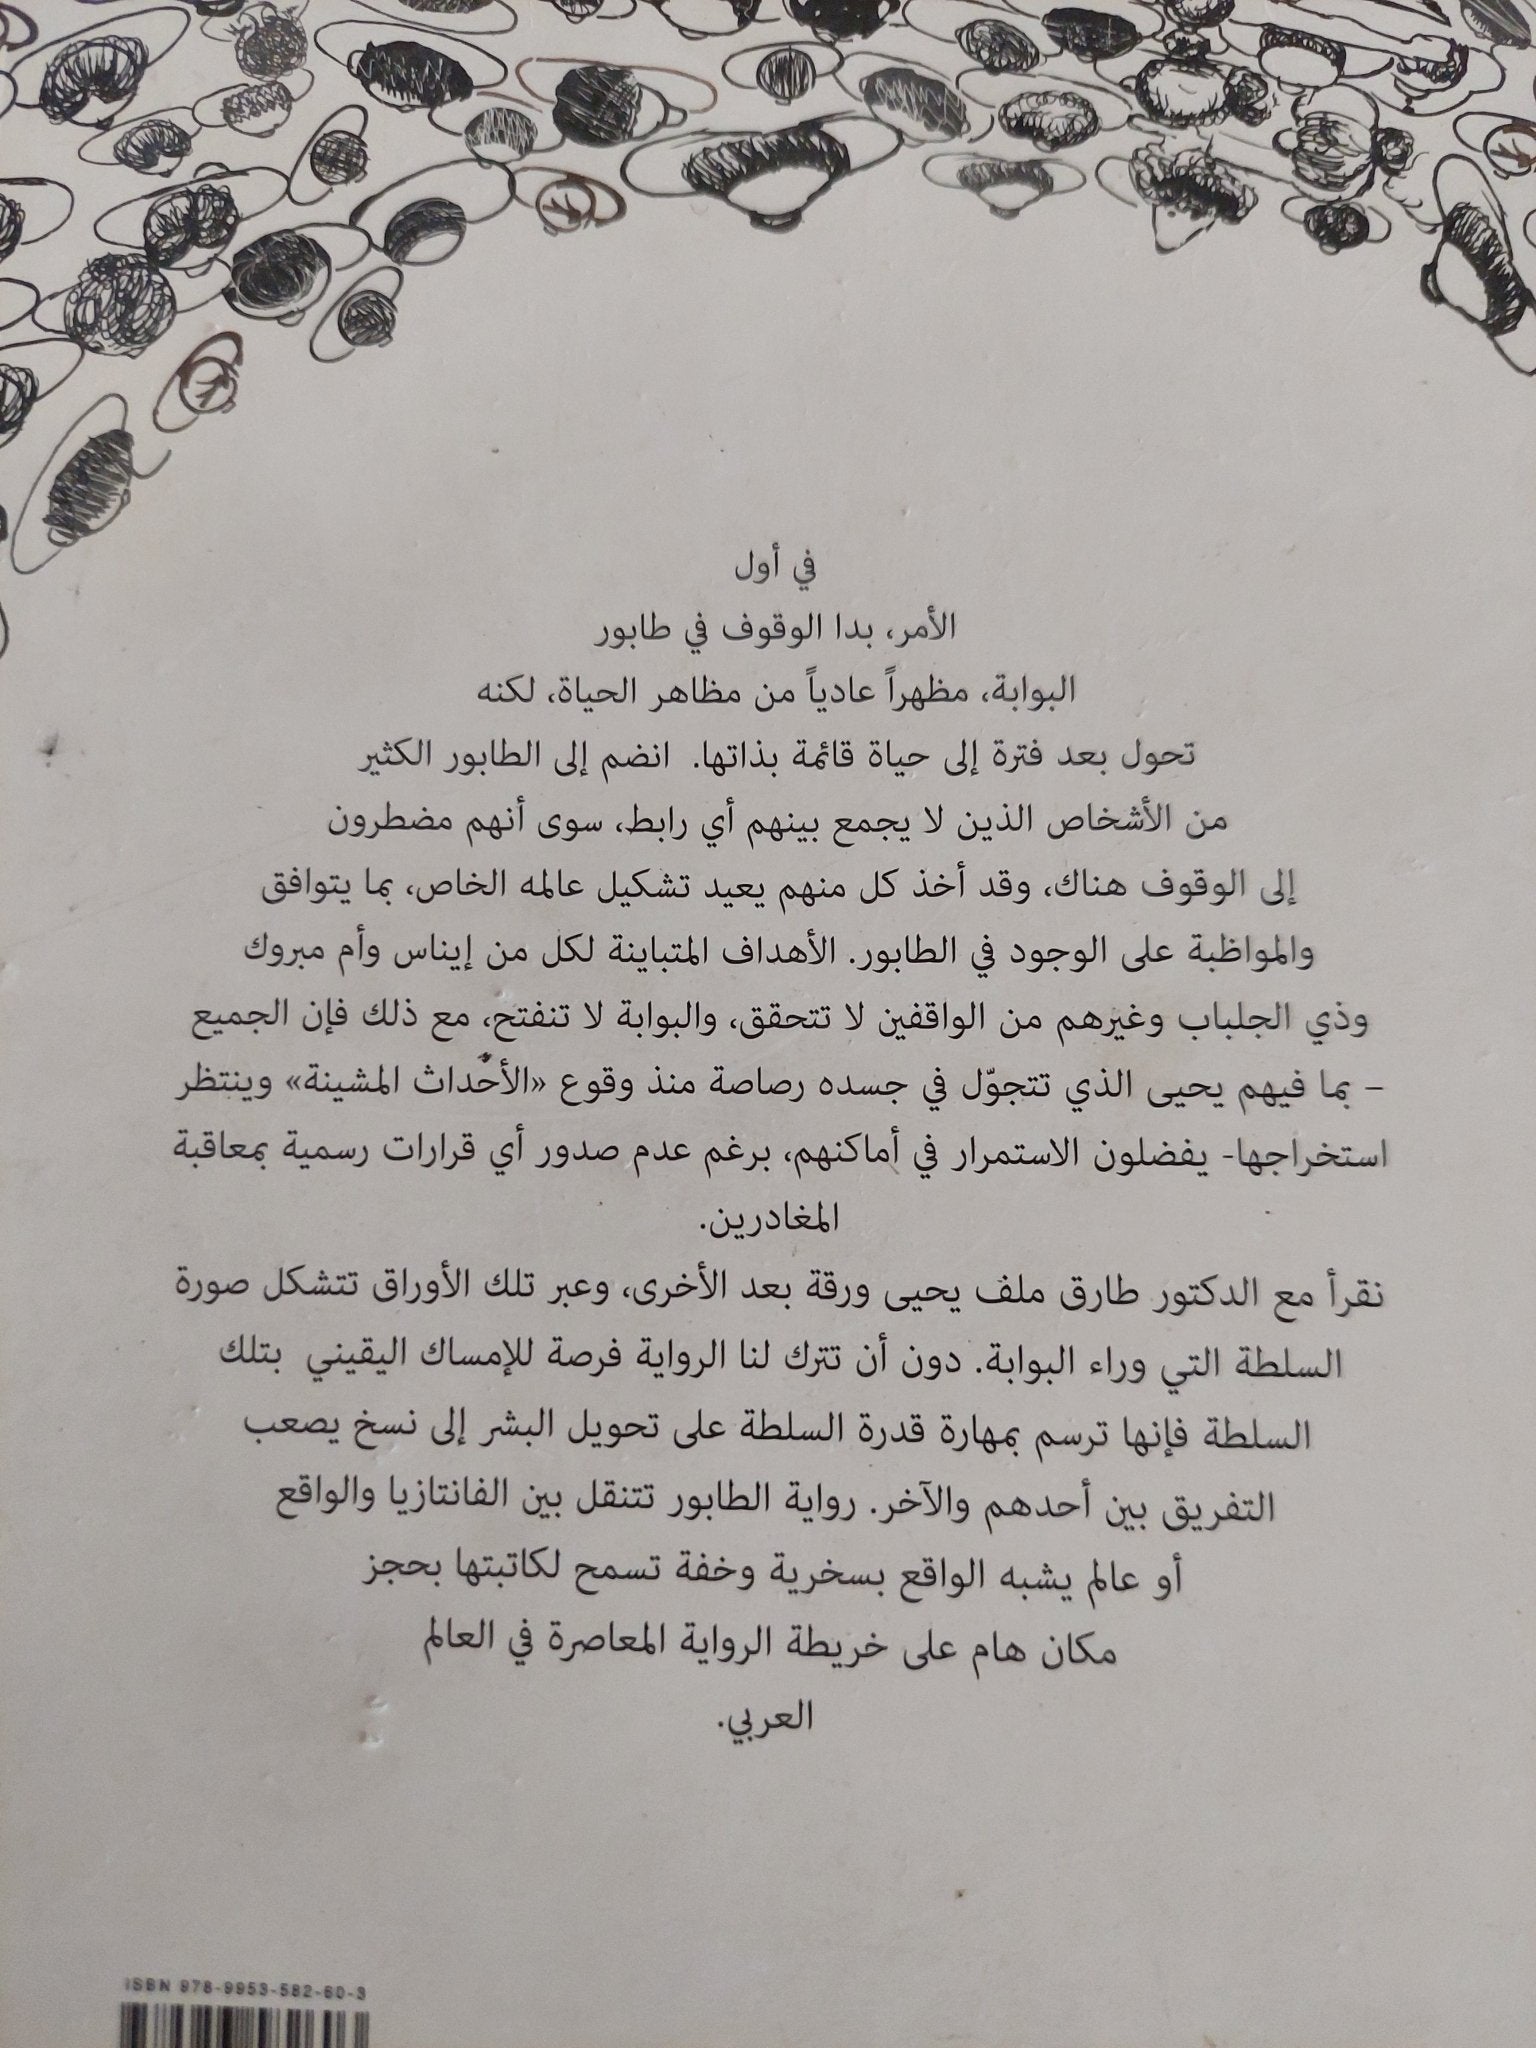 في أول
الأمر، بدا الوقوف في طابور
البوابة، مظهراً عادياً من مظاهر الحياة، لكنه
تحول بعد فترة إلى حياة قائمة بذاتها. انضم إلى الطابور الكثير
من الأشخاص الذين لا يجمع بينهم أي رابط، سوى أنهم مضطرون
إلى الوقوف هناك، وقد أخذ كل منهم يعيد تشكيل عالمه الخاص، بما يتوافق
والمواظبة على الوجود في الطابور. الأهداف المتباينة لكل من إيناس وأم مبروك
وذي الجلباب وغيرهم من الواقفين لا تتحقق، والبوابة لا تنفتح، مع ذلك فإن الجميع
– بما فيهم يحيى الذي تتجوّل في جسده رصاصة منذ وقوع «الأحداث المشينة» وينتظر
استخراجها- يفضلون الاستمرار في أماكنهم، برغم عدم صدور أي قرارات رسمية بمعاقبة
المغادرين.
نقرأ مع الدكتور طارق ملف يحيى ورقة بعد الأخرى، وعبر تلك الأوراق تتشكل صورة
السلطة التي وراء البوابة. دون أن تترك لنا الرواية فرصة للإمساك اليقيني بتلك
السلطة فإنها ترسم بمهارة قدرة السلطة على تحويل البشر إلى نسخ يصعب
التفريق بين أحدهم والآخر. رواية الطابور تتنقل بين الفانتازيا والواقع
أو عالم يشبه الواقع بسخرية وخفة تسمح لكاتبتها بحجز
مكان هام على خريطة الرواية المعاصرة في العالم
العربي.
ISBN 978-9953-582-60-3